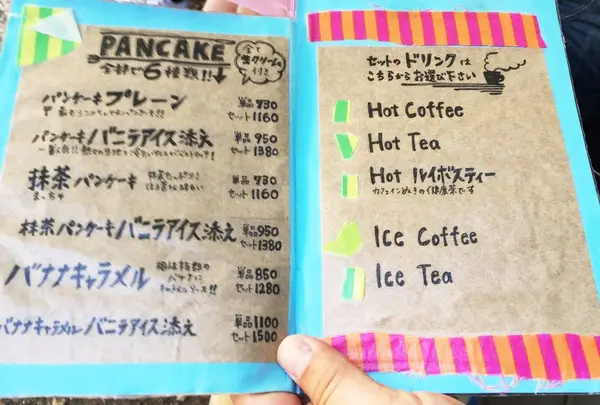 PANCAKE
全部で6種類!!
全て
生クリーム
付き
パンケーキ プレーン
単品 730
セット 1160
パンケーキ バニラアイス添え
単品 950
セット 1380
抹茶パンケーキ
まっちゃ
単品 730
セット 1160
抹茶パンケーキバニラアイス添え
単品 950
セット 1380
バナナキャラメル
相性抜群の
バナナに
キャラメルソース!!
単品 850
セット 1280
バナナキャラメルバニラアイス添え
単品 1100
セット 1500
セットのドリンクは
こちらからお選び下さい
Hot Coffee
Hot Tea
Hot ルイボスティー
カフェインぬきの健康茶です
Ice Coffee
Ice Tea